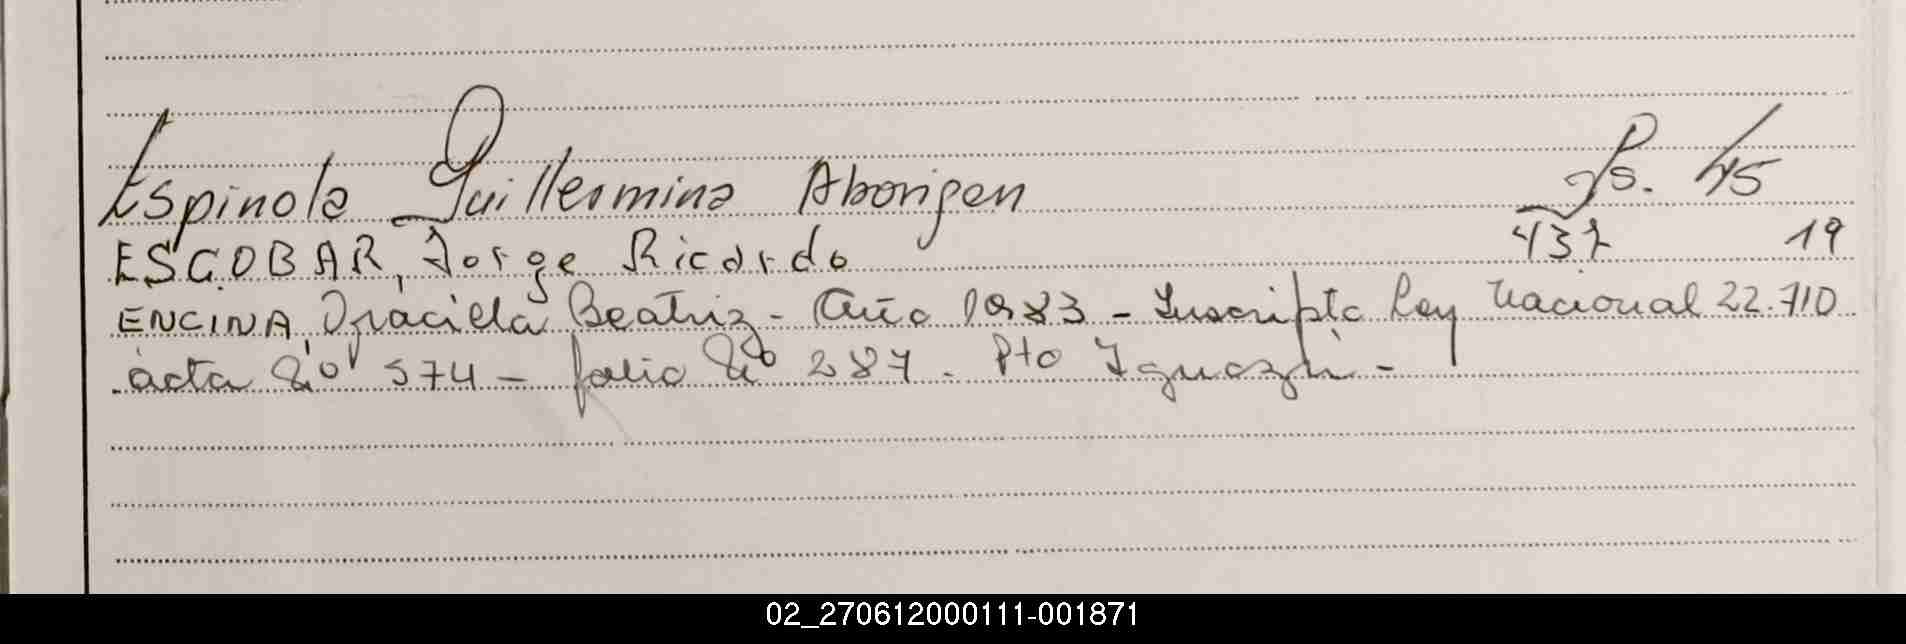 Espinola Guillermina Aborigen Ps. 45
ESCOBAR, Jorge Ricardo 437 19
ENCINA, Graciela Beatriz - Año 1983 - Inscripta Ley Nacional 22.710
acta Nº 574 - folio Nº 287. Pto Iguazú -
02_270612000111-001871